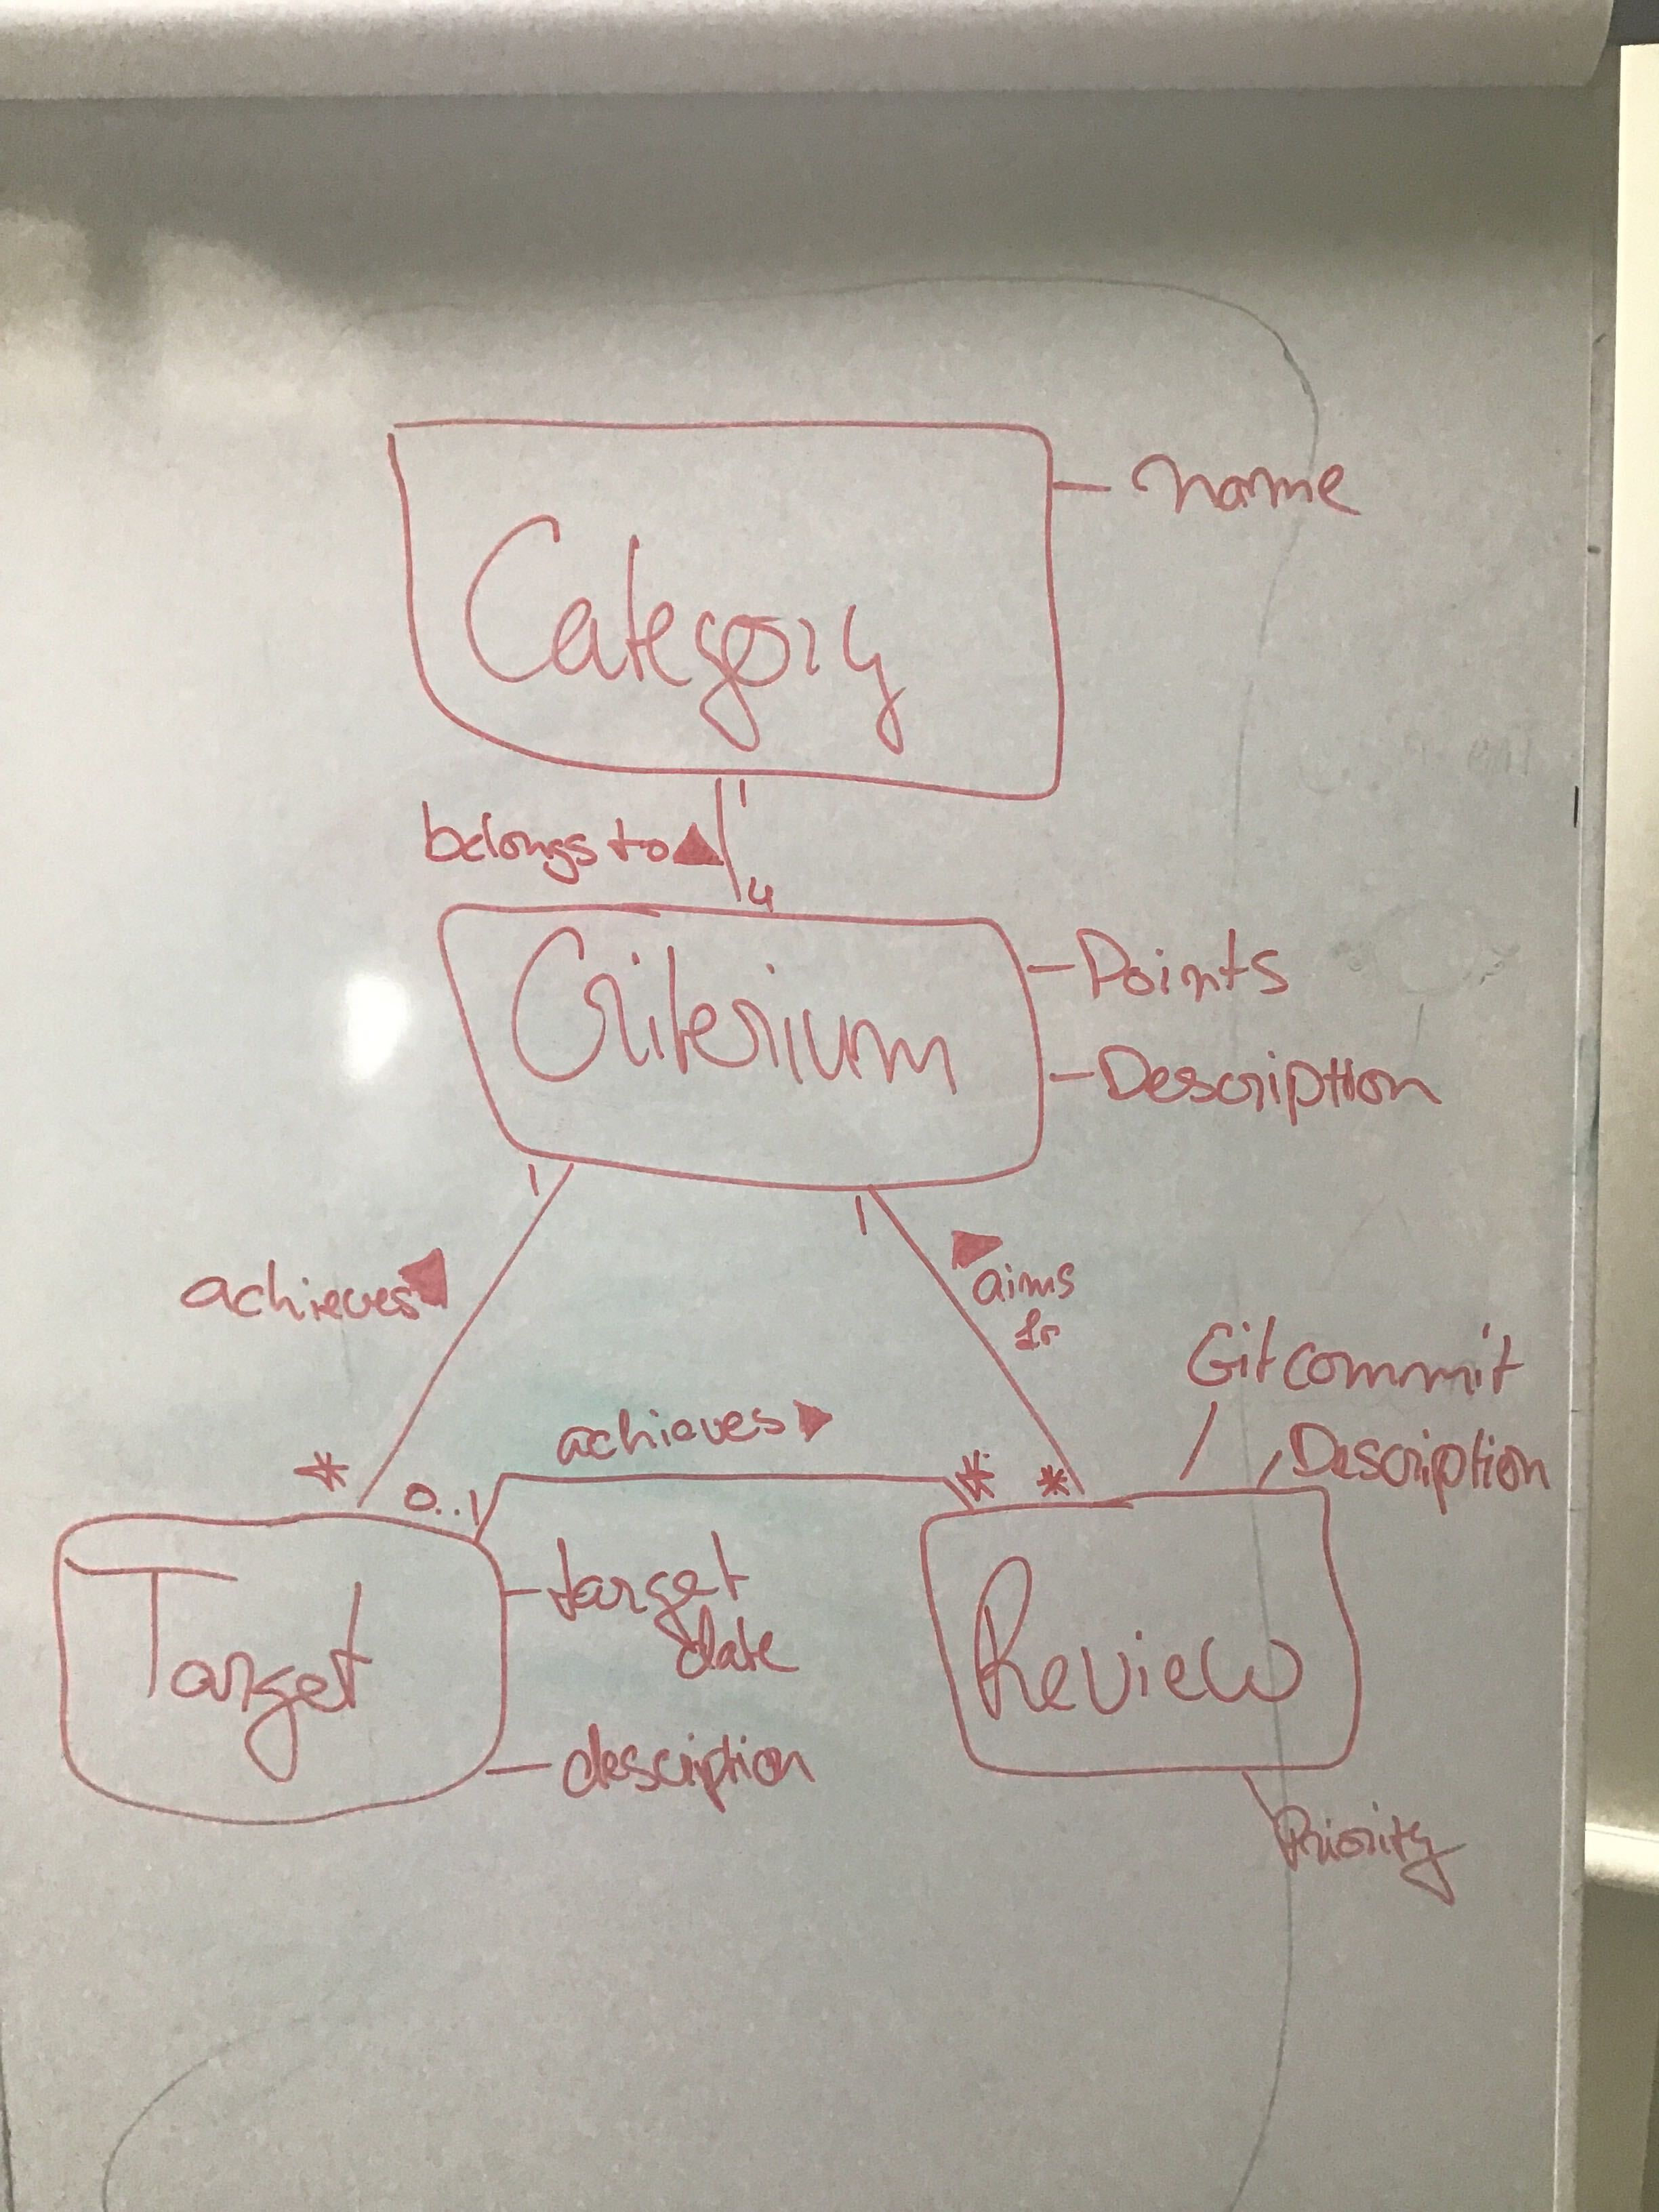 name
Category
belongs to
1
4
Criterium
Points
Description
1
1
achieves
aims
Git commit
Description
achieves
*
0..1
*
*
Target
target
date
description
Review
Priority